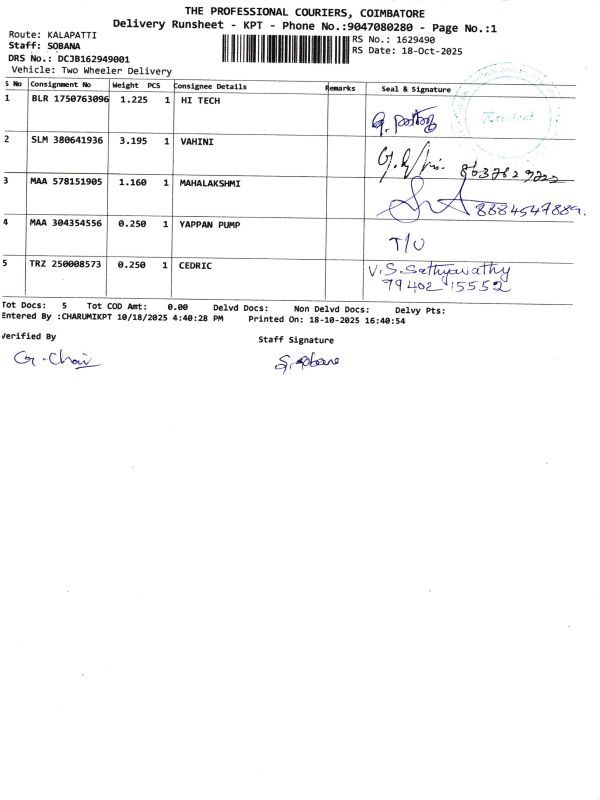 THE PROFESSIONAL COURIERS, COIMBATORE
Delivery Runsheet - KPT - Phone No.:9047080280 - Page No.:1
Route: KALAPATTI
RS No.: 1629490
Staff: SOBANA
RS Date: 18-Oct-2025
DRS No.: DCJB162949001
Vehicle: Two Wheeler Delivery
S No Consignment No Weight PCS Consignee Details Remarks Seal & Signature
1 BLR 1750763096 1.225 1 HI TECH
2 SLM 380641936 3.195 1 VAHINI
3 MAA 578151905 1.160 1 MAHALAKSHMI 8884547889.
4 MAA 304354556 0.250 1 YAPPAN PUMP T/U
5 TRZ 250008573 0.250 1 CEDRIC V.S.Sathyavathy
79402 15552
Tot Docs: 5 Tot COD Amt: 0.00 Delvd Docs: Non Delvd Docs: Delvy Pts:
Entered By :CHARUMIKPT 10/18/2025 4:40:28 PM Printed On: 18-10-2025 16:40:54
Verified By
Staff Signature